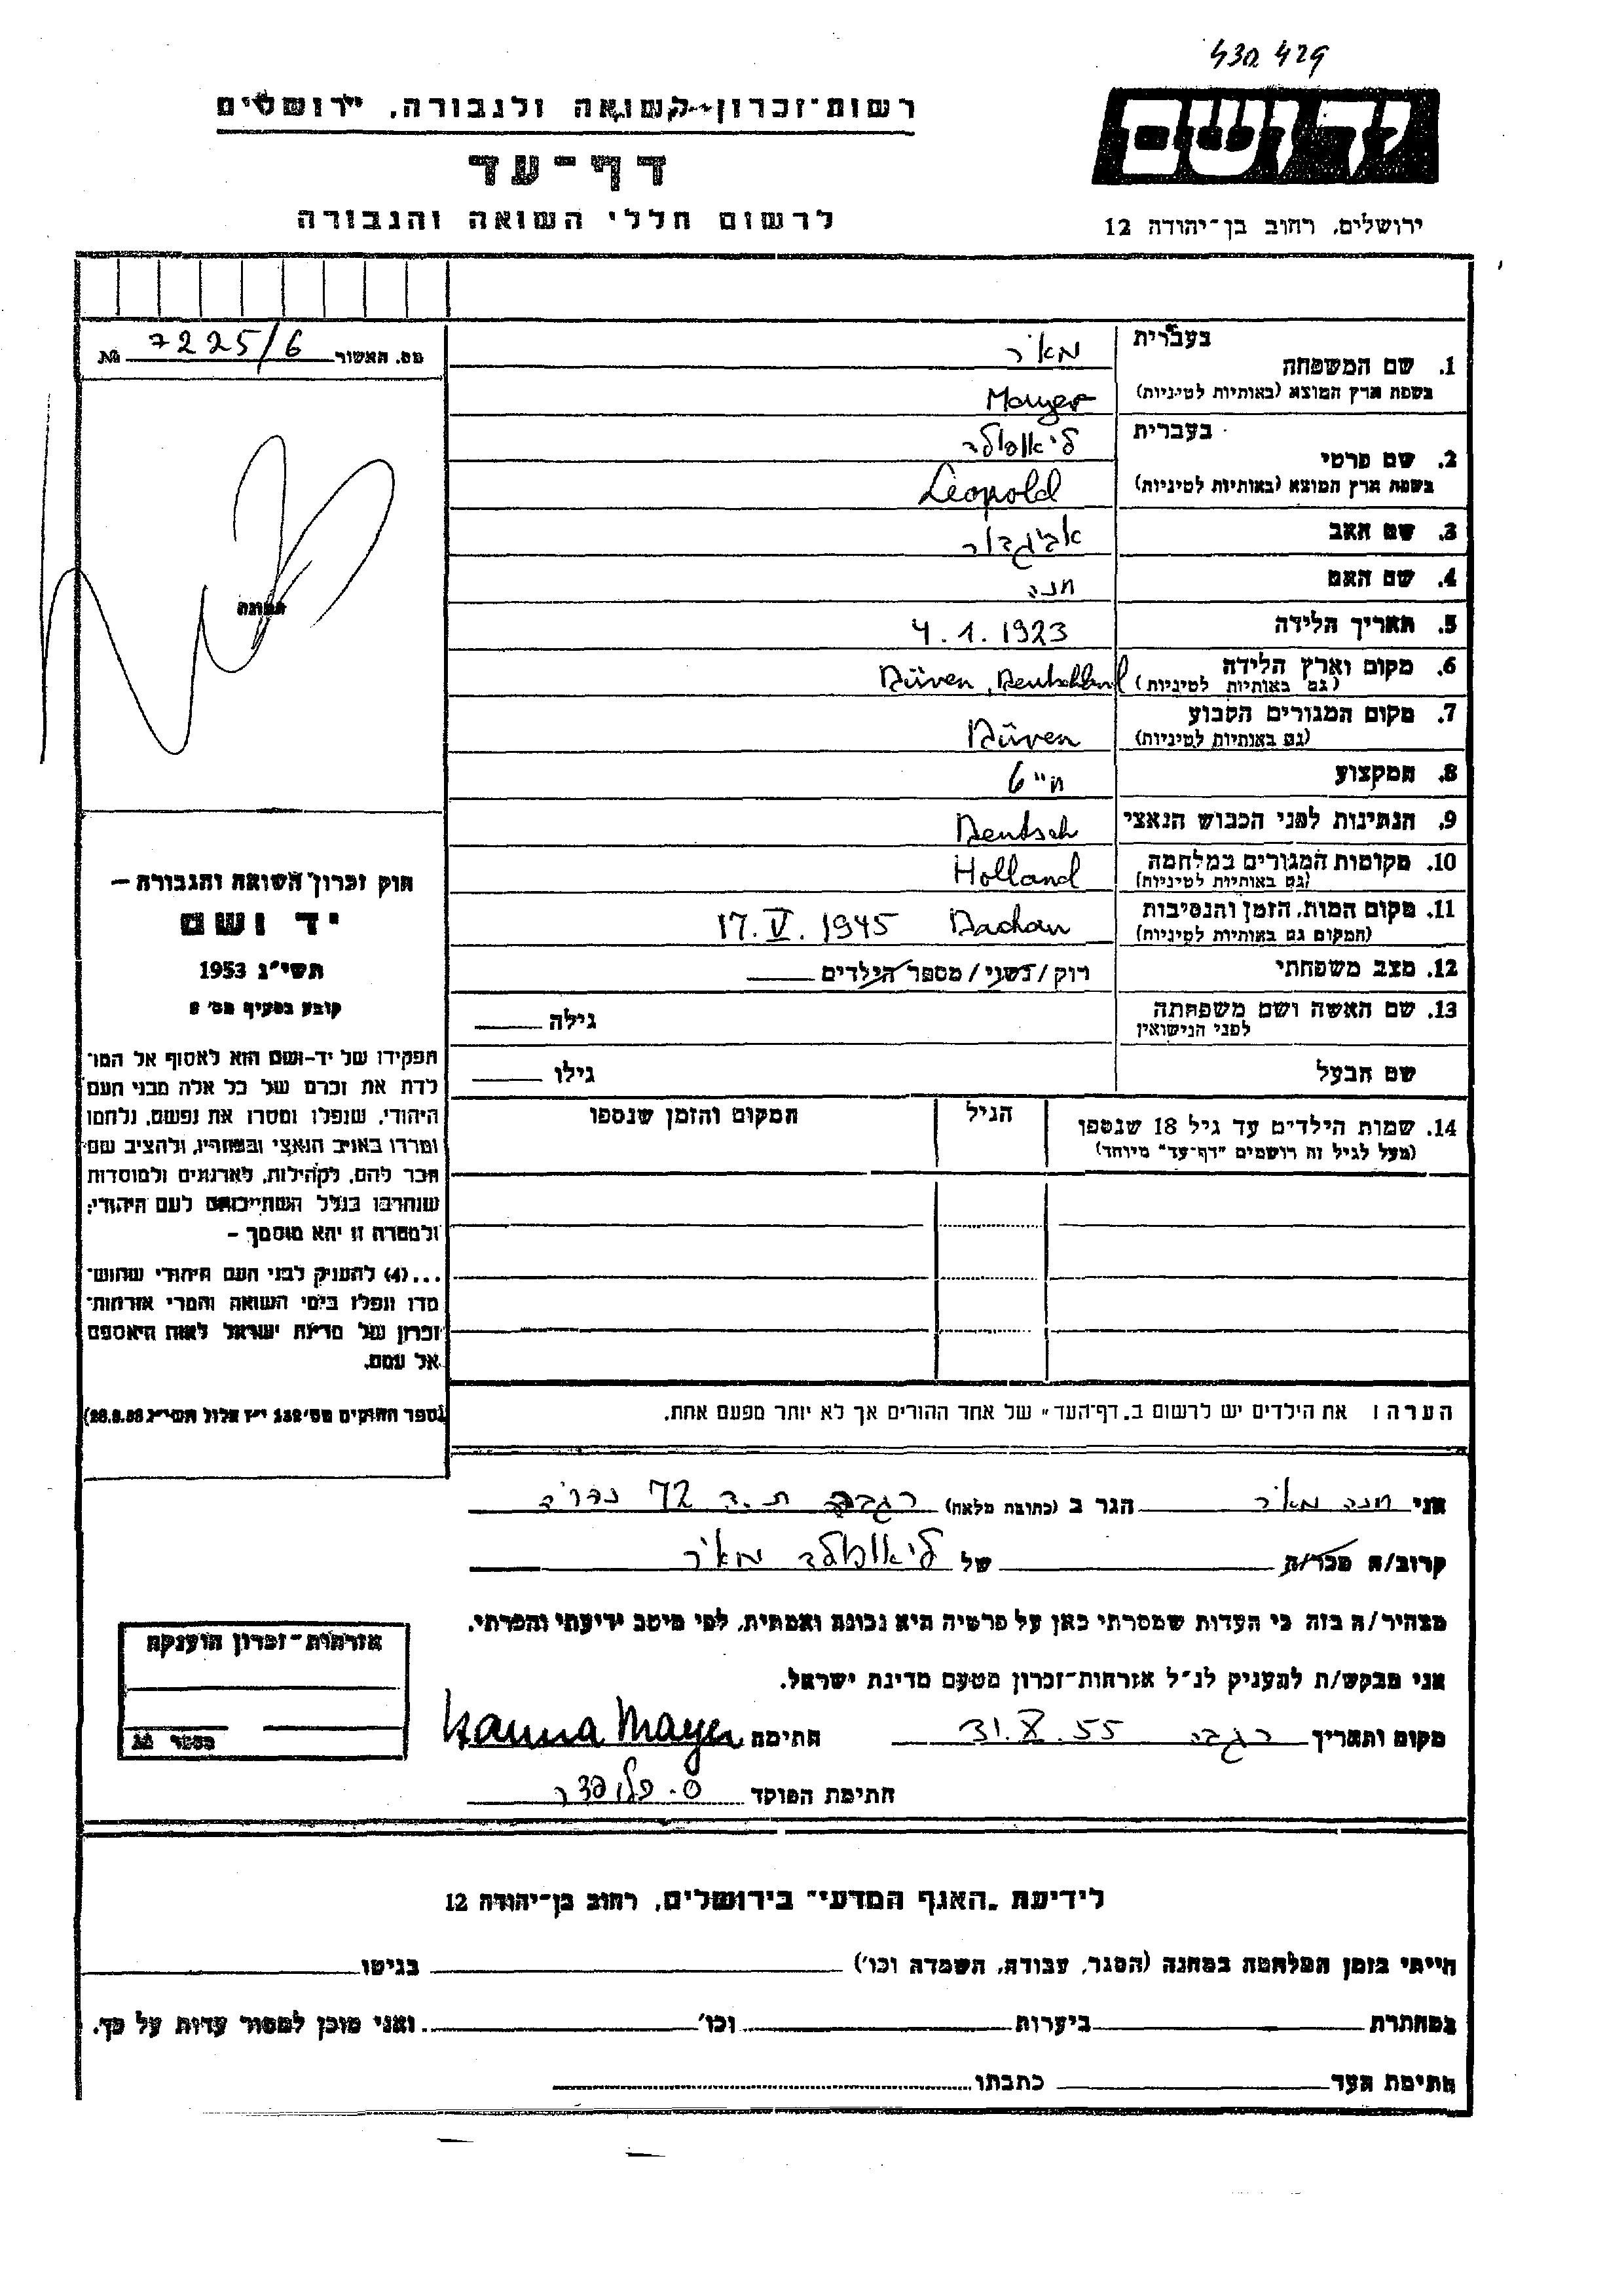 430 429
רשות־זכרון לשואה ולגבורה, ירושלים
יד ושם
דף־עד
לרשום חללי השואה והגבורה
ירושלים, רחוב בן־יהודה 12
מס. האשור 7225/6 №
תמונה
1. שם המשפחה
בעברית מאיר
בשפת ארץ המוצא (באותיות לטיניות) Mayer
2. שם פרטי
בעברית ליאופולד
בשפת ארץ המוצא (באותיות לטיניות) Leopold
3. שם האב אביגדור
4. שם האם חנה
5. תאריך הלידה 4.1.1923
6. מקום וארץ הלידה Düren, Deutschland
(גם באותיות לטיניות)
7. מקום המגורים הקבוע Düren
(גם באותיות לטיניות)
8. המקצוע
9. הנתינות לפני הכבוש הנאצי Deutsch
10. מקומות המגורים במלחמה Holland
(גם באותיות לטיניות)
11. מקום המות, הזמן והנסיבות Dachau 17.V.1945
(המקום גם באותיות לטיניות)
12. מצב משפחתי רוק/נשוי/מספר הילדים
13. שם האשה ושם משפחתה גילה
לפני הנישואין
שם הבעל גילו
14. שמות הילדים עד גיל 18 שנספו הגיל המקום והזמן שנספו
(מעל לגיל זה רושמים "דף־עד" מיוחד)
חוק זכרון השואה והגבורה –
יד ושם
תשי"ג 1953
קובע בסעיף מס' 2
תפקידו של יד־ושם הוא לאסוף אל המו־
לדת את זכרם של כל אלה מבני העם
היהודי, שנפלו ומסרו את נפשם, נלחמו
ומרדו באויב הנאצי ובעוזריו, ולהציב שם
וזכר להם, לקהילות, לארגונים ולמוסדות
שנחרבו בגלל השתייכותם לעם היהודי;
ולמטרה זו יהא מוסמך –
...(4) להעניק לבני העם היהודי שהוש־
מדו ונפלו בימי השואה והמרי אזרחות־
זכרון של מדינת ישראל לאות היאספם
אל עמם.
(ספר החוקים מס' 132 י"ז אלול תשי"ג 28.8.53)
הערה: את הילדים יש לרשום ב„דף־העד" של אחד ההורים אך לא יותר מפעם אחת.
אני חנה מאיר הגר ב (כתובת מלאה) רגבה ת.ד 72 נהריה
קרוב/ה מכר/ה של ליאופולד מאיר
מצהיר/ה בזה כי העדות שמסרתי כאן על פרטיה היא נכונה ואמתית, לפי מיטב ידיעתי והכרתי.
אני מבקש/ת להעניק לנ"ל אזרחות־זכרון מטעם מדינת ישראל.
מקום ותאריך רגבה 31.X.55 חתימה Hanna Mayer
חתימת הפוקד
אזרחות־זכרון הוענקה
מספר №
לידיעת „האגף המדעי" בירושלים, רחוב בן־יהודה 12
הייתי בזמן המלחמה במחנה (הסגר, עבודה, השמדה וכו') בגיטו
במחתרת ביערות וכו' ואני מוכן למסור עדות על כך.
חתימת העד כתבתו